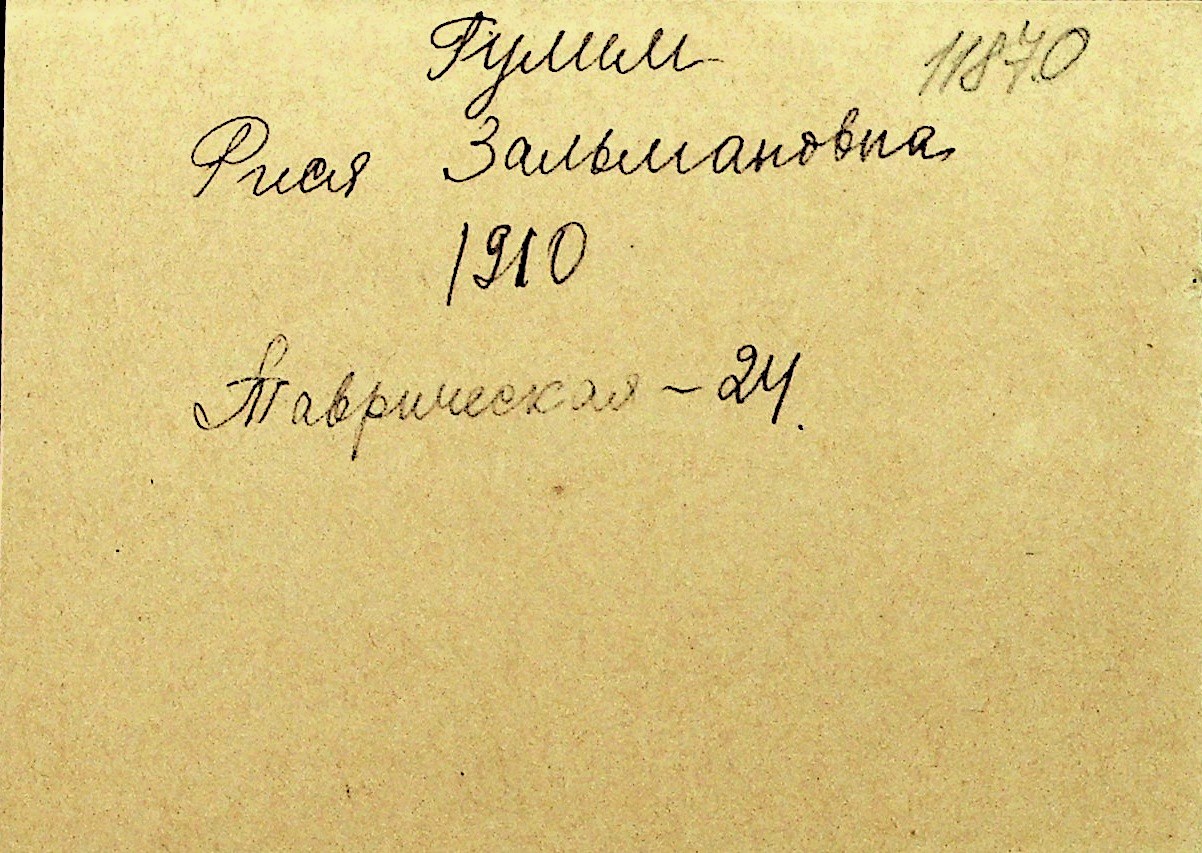 Гумим 11870
Рися Зальмановна
1910
Таврическая - 24.